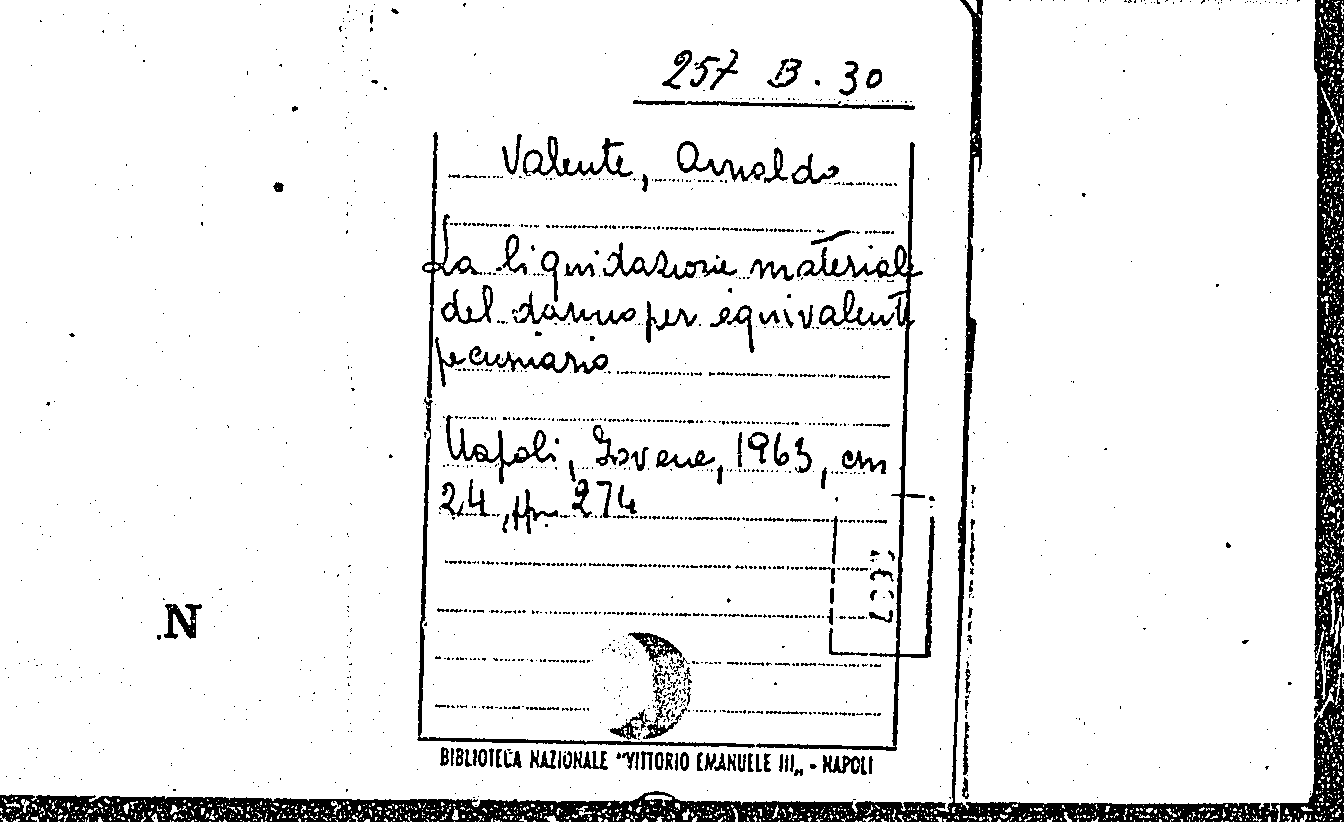 257 B. 30
Valente, Arnaldo
La liquidazione materiale
del danno per equivalente
pecuniario
Napoli, Jovene, 1963, cm
24, pp. 274
N
BIBLIOTECA NAZIONALE "VITTORIO EMANUELE III„ - NAPOLI